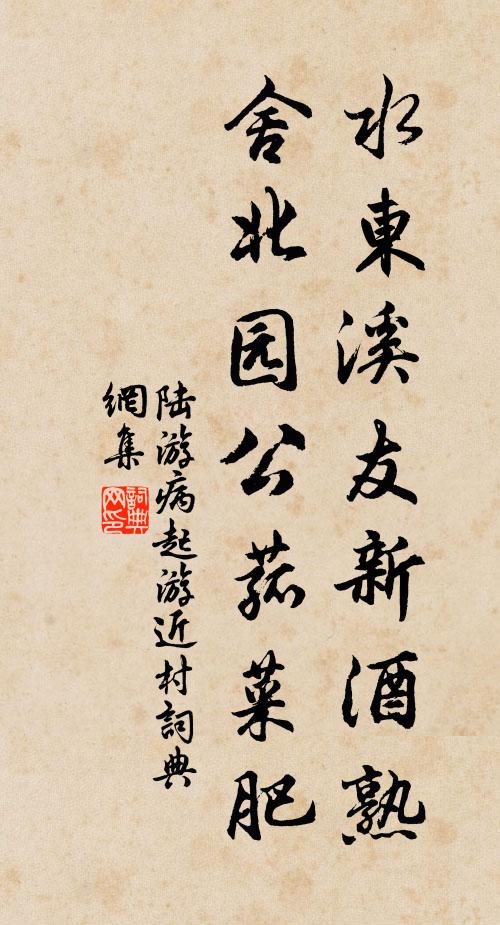 水東溪友新酒熟
舍北园公菰菜肥
陆游病起游近村詞典
網集
詞典
网印